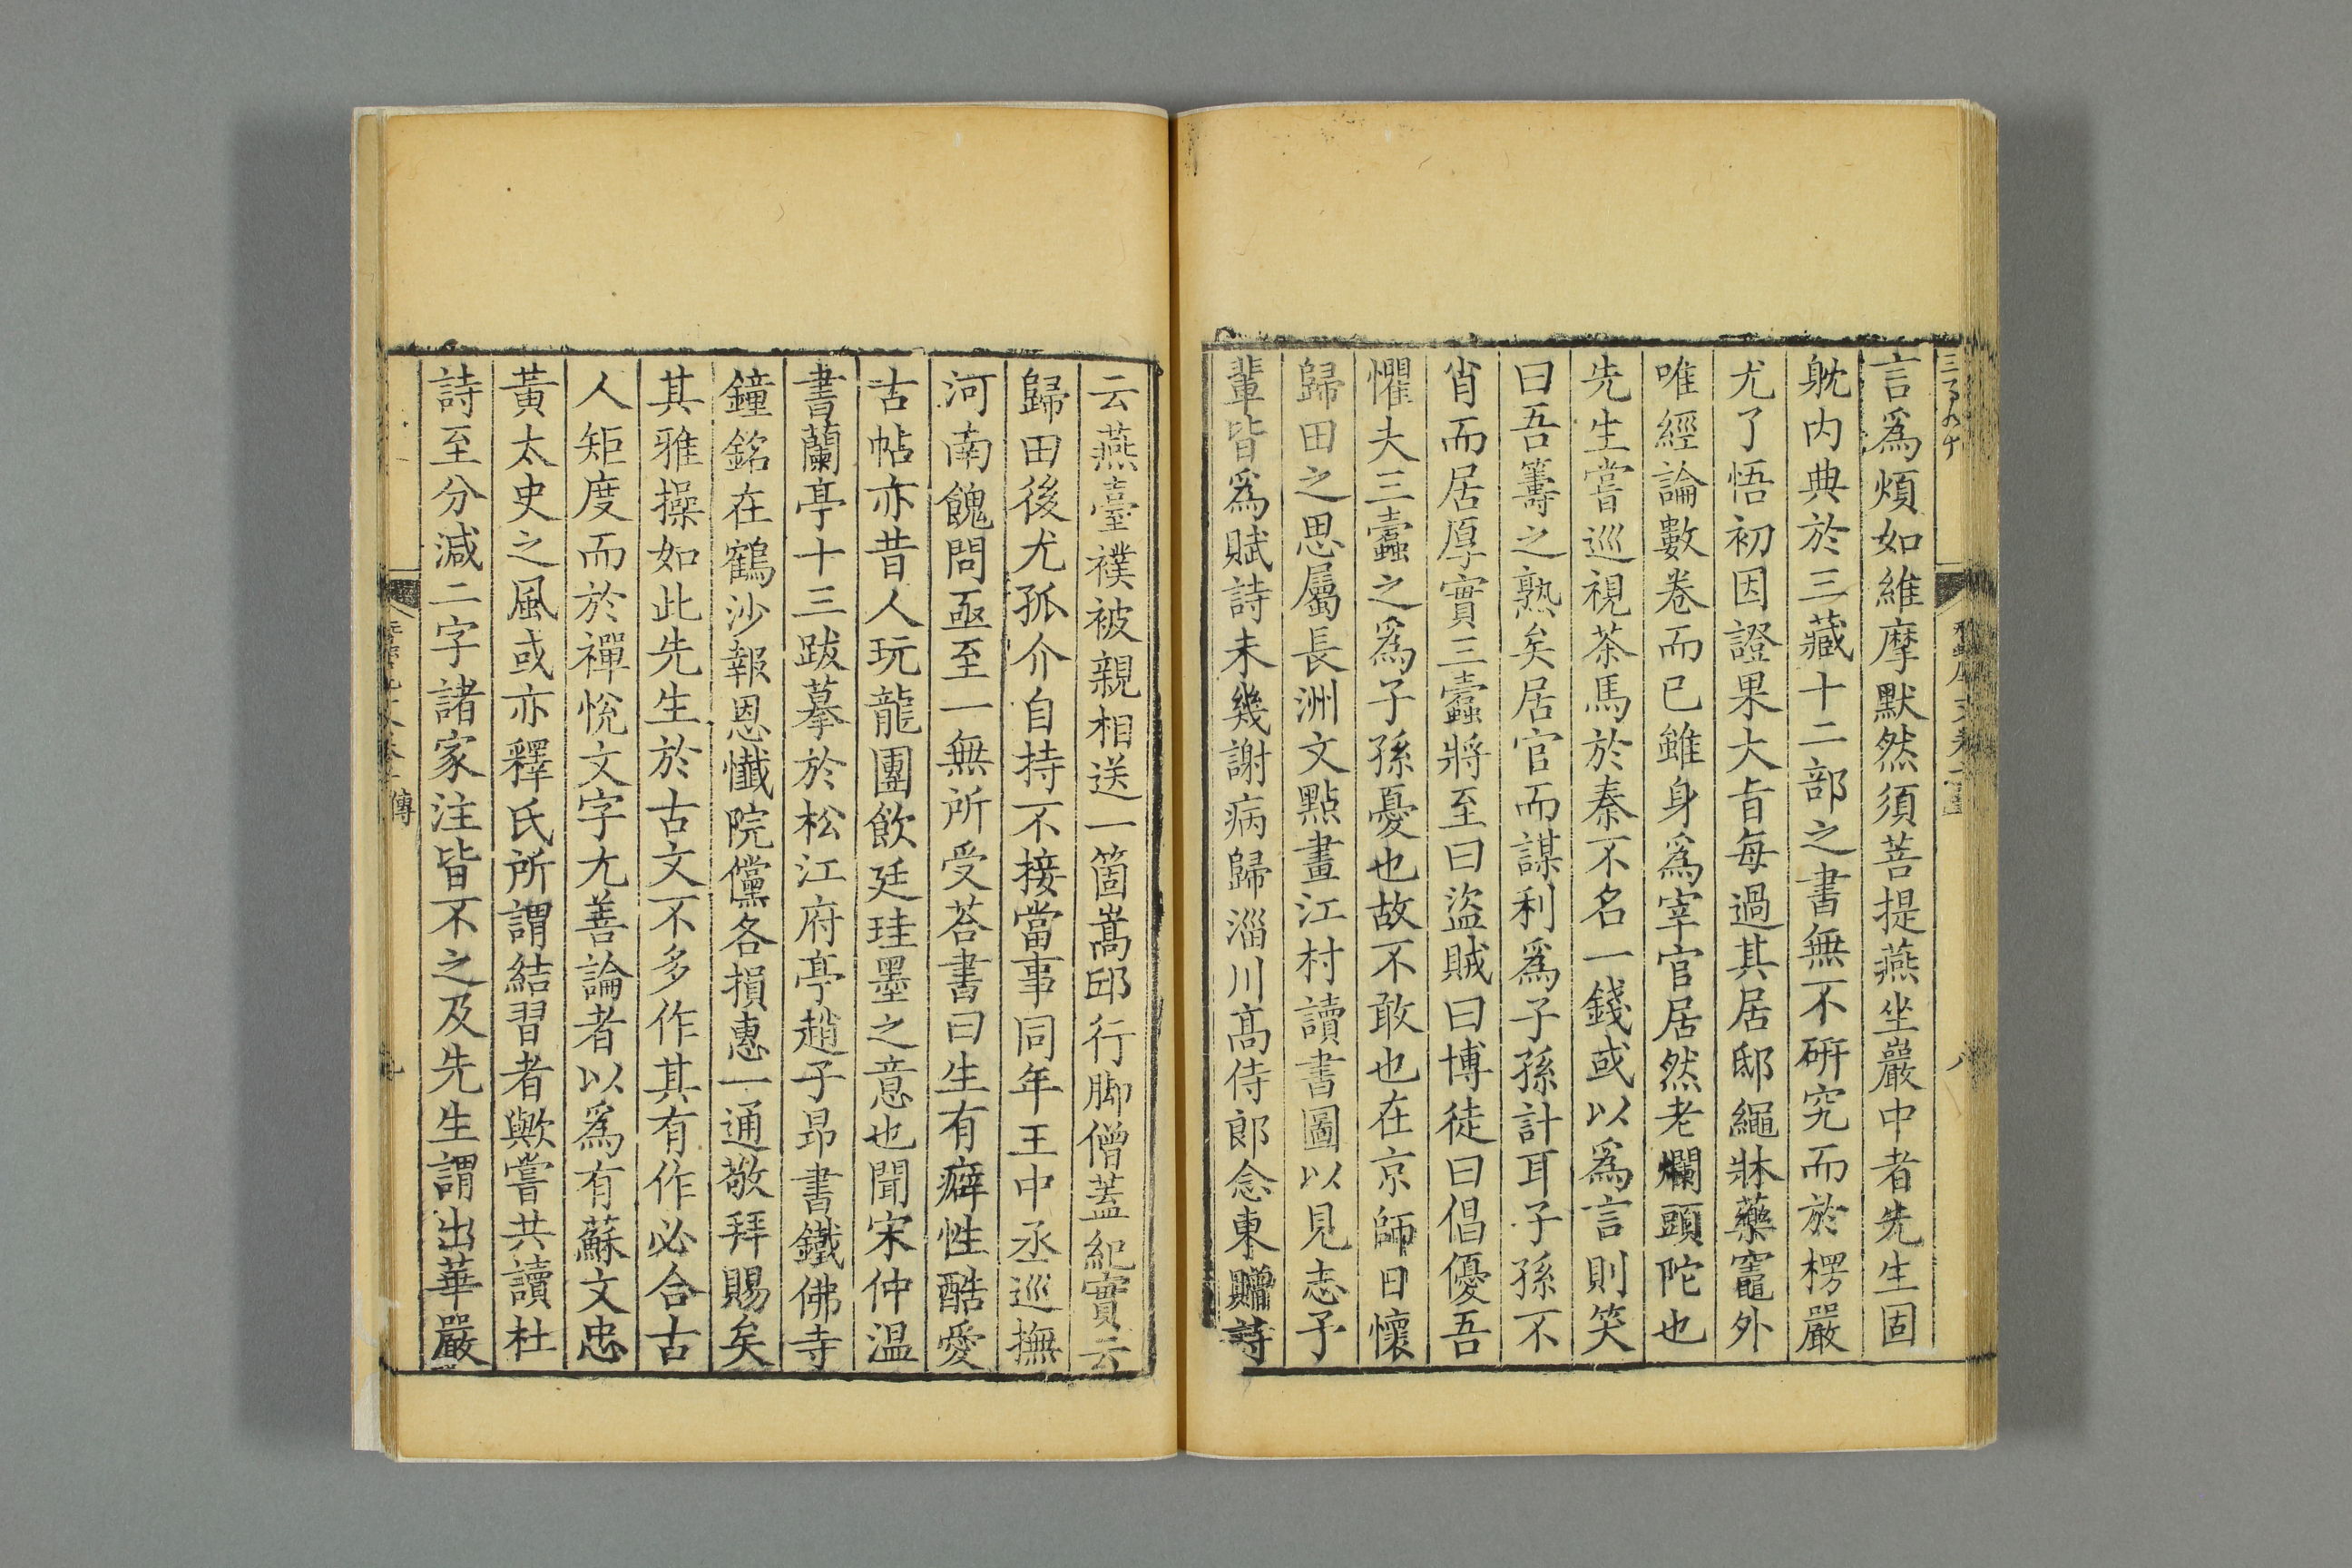 言爲煩如維摩默然須菩提燕坐巖中者先生固
躭内典於三藏十二部之書無不硏究而於楞嚴
尤了悟初因證果大旨每過其居邸繩牀藥竈外
唯經論數卷而已雖身爲宰官居然老爛頭陀也
先生嘗巡視茶馬於秦不名一錢或以爲言則笑
曰吾籌之熟矣居官而謀利爲子孫計耳子孫不
肖而居厚實三蠹將至曰盜賊曰博徒曰倡優吾
懼夫三蠹之爲子孫憂也故不敢也在京師日懷
歸田之思屬長洲文點畫江村讀書圖以見志予
輩皆爲賦詩未幾謝病歸淄川髙侍郎念東贈詩
云燕臺襆被親相送一箇嵩邱行脚僧蓋紀實云
歸田後尤孤介自持不接當事同年王中丞巡撫
河南餽問亟至一無所受荅書曰生有癖性酷愛
古帖亦昔人玩龍團飲廷珪墨之意也聞宋仲温
書蘭亭十三跋摹於松江府亭趙子昂書鐵佛寺
鐘銘在鶴沙報恩懺院儻各損惠一通敬拜賜矣
其雅操如此先生於古文不多作其有作必合古
人矩度而於禪悅文字尤善論者以爲有蘇文忠
黃太史之風或亦釋氏所謂結習者歟嘗共讀杜
詩至分減二字諸家注皆不之及先生謂出華嚴
傳